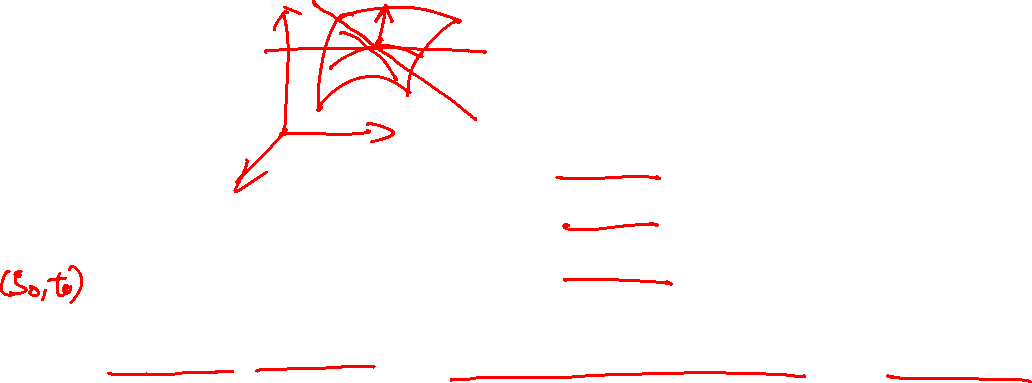 (s₀,t₀)